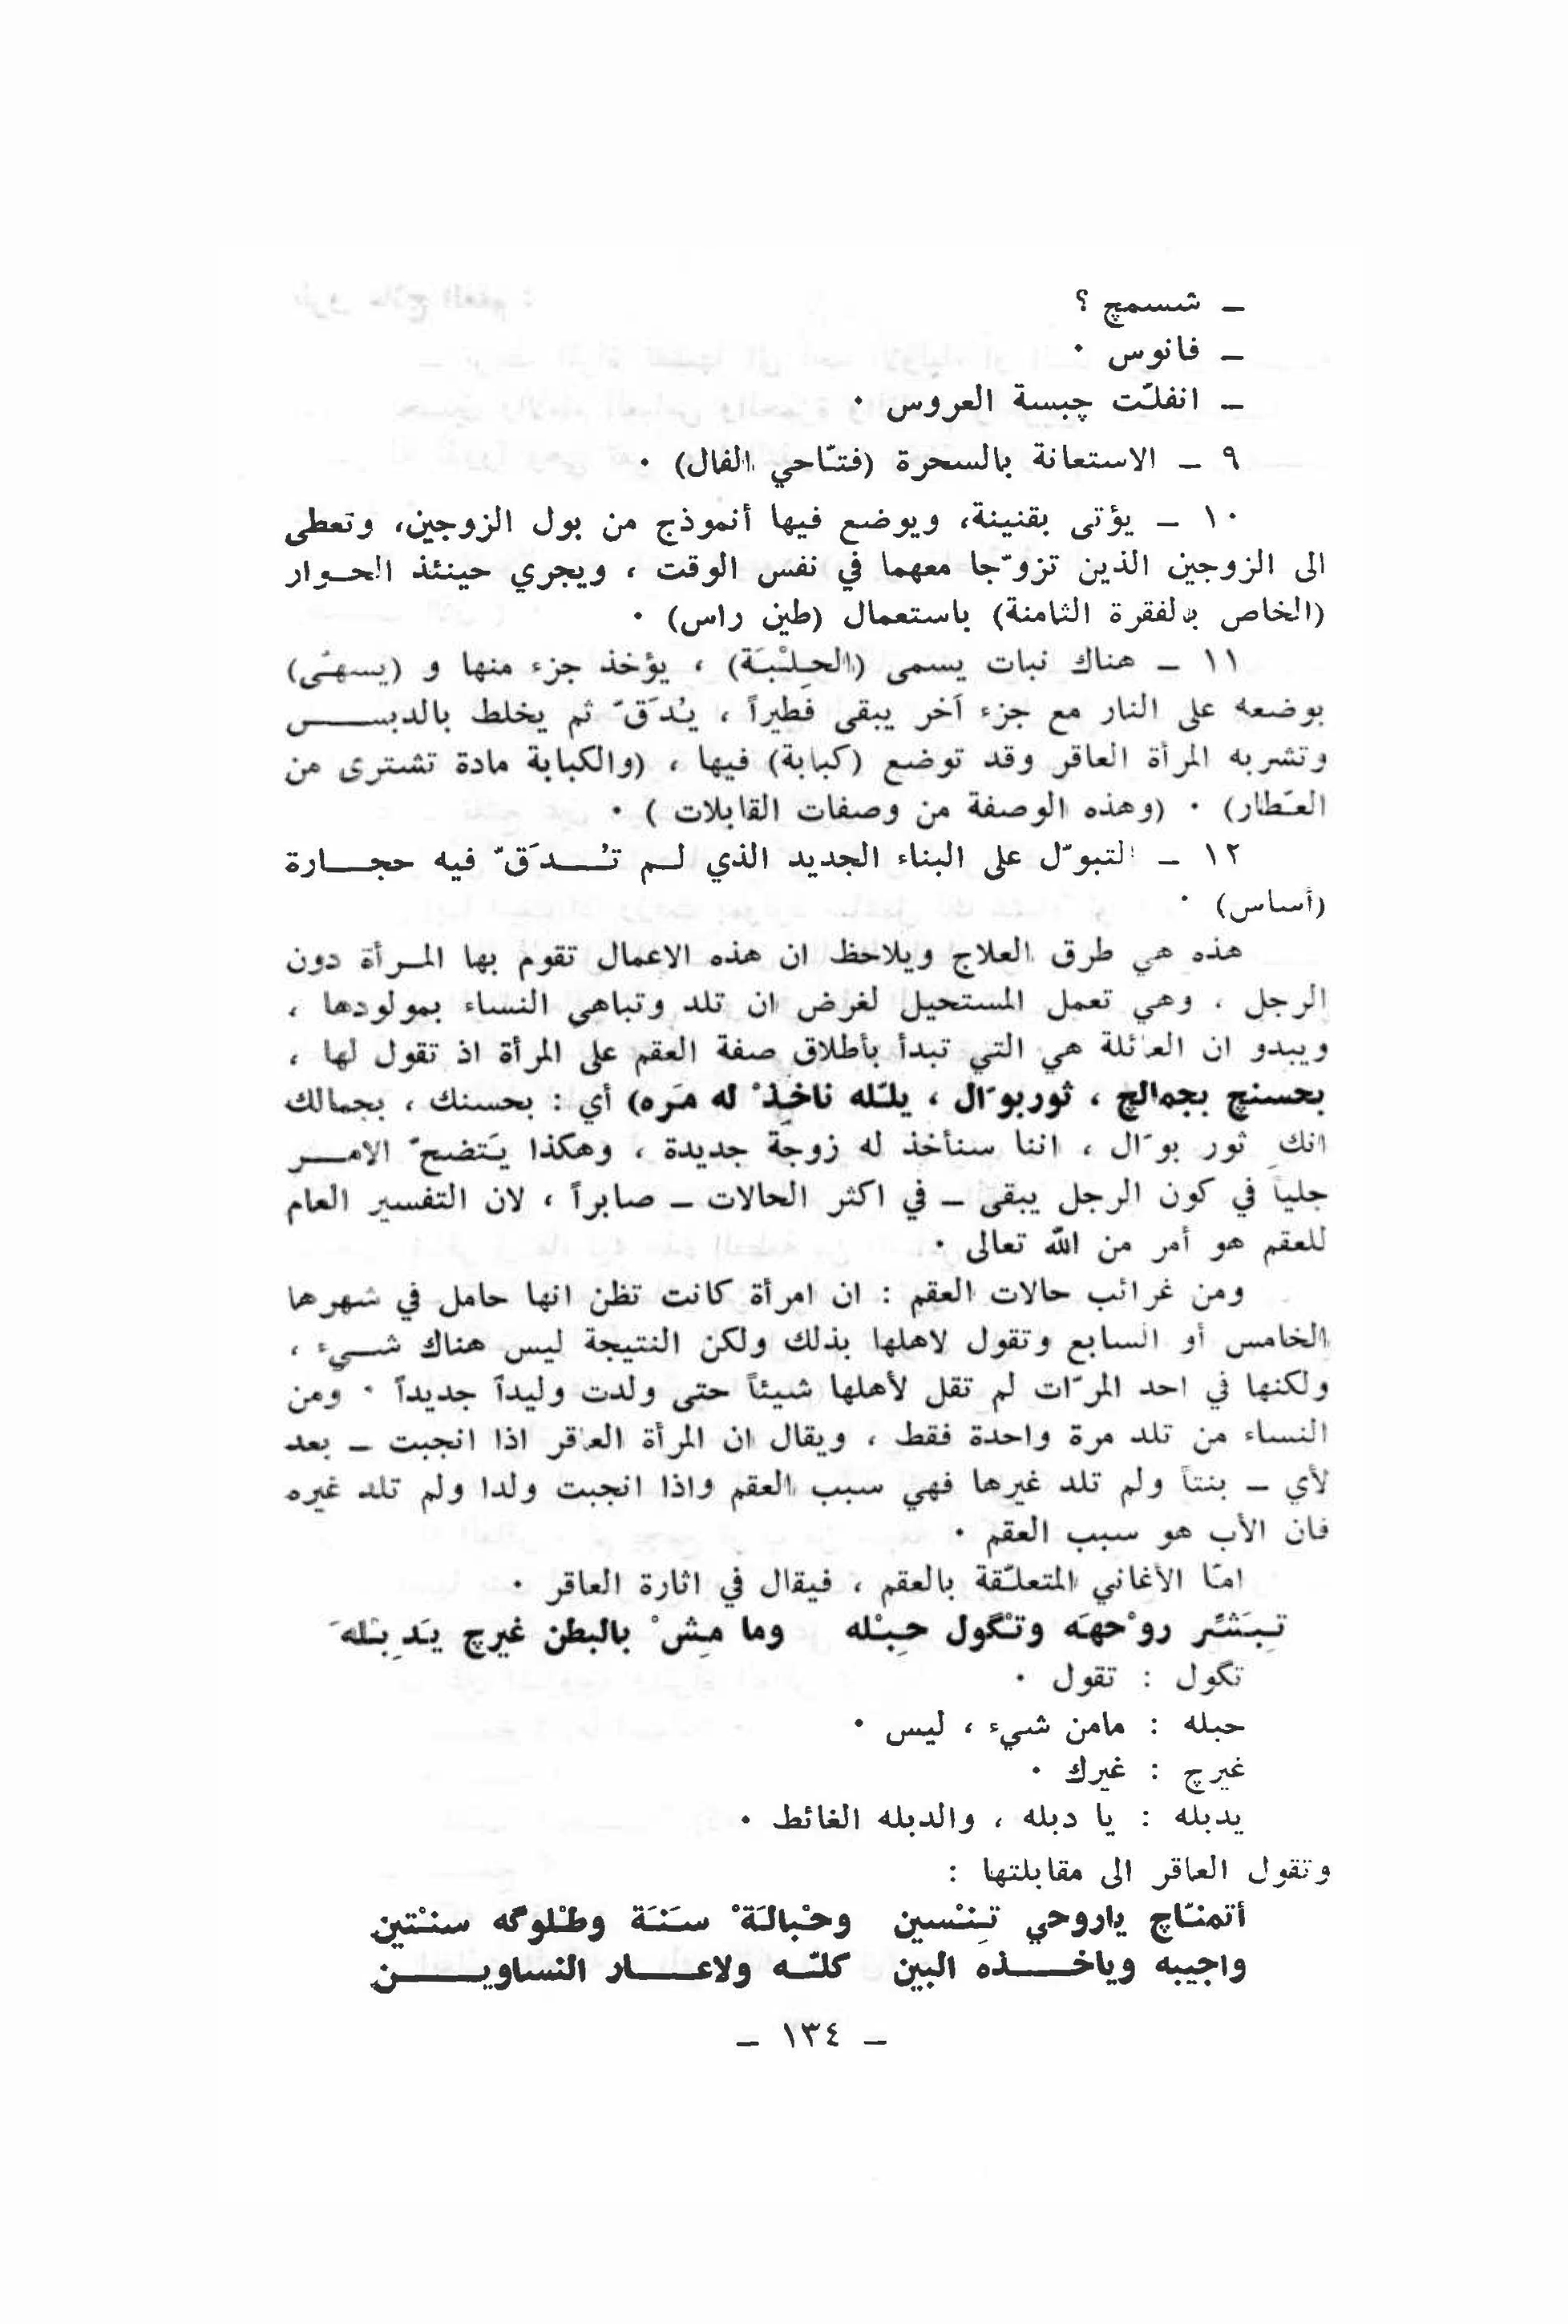 ـ شسمچ ؟
ـ فانوس ٠
ـ انفلّت چبسة العروس ٠
٩ ـ الاستعانة بالسحرة (فتّاحي الفال) ٠
١٠ ـ يؤتى بقنينة، ويوضع فيها أنموذج من بول الزوجين، وتعطى
الى الزوجين الذين تزوّجا معهما في نفس الوقت ، ويجري حينئذ الحـوار
(الخاص بالفقرة الثامنة) باستعمال (طين راس) ٠
١١ ـ هناك نبات يسمى (الحِلْبَة) ، يؤخذ جزء منها و (يسهّى)
بوضعه على النار مع جزء آخر يبقى فطيراً ، يُدَقّ ثم يخلط بالدبـــس
وتشربه المرأة العاقر وقد توضع (كبابة) فيها ، (والكبابة مادة تشترى من
العَطار) ٠ (وهذه الوصفة من وصفات القابلات ) ٠
١٢ ـ التبوّل على البناء الجديد الذي لـم تُــدَقّ فيه حجــارة
(أساس) ٠
هذه هي طرق العلاج ويلاحظ ان هذه الاعمال تقوم بها المـرأة دون
الرجل ، وهي تعمل المستحيل لغرض ان تلد وتباهي النساء بمولودها ،
ويبدو ان العائلة هي التي تبدأ بأطلاق صفة العقم على المرأة اذ تقول لها ،
بحسنچ بجمالچ ، ثوربوَال ، يلـّله ناخِذْ له مَره) أي : بحسنك ، بجمالك
انكِ ثور بوَال ، اننا سنأخذ له زوجة جديدة ، وهكذا يَتضحّ الامــر
جلياً في كون الرجل يبقى ـ في اكثر الحالات ـ صابراً ، لان التفسير العام
للعقم هو أمر من الله تعالى ٠
ومن غرائب حالات العقم : ان امرأة كانت تظن انها حامل في شهرها
الخامس أو السابع وتقول لاهلها بذلك ولكن النتيجة ليس هناك شــيء ،
ولكنها في احد المرّات لم تقل لأهلها شيئاً حتى ولدت وليداً جديداً ٠ ومن
النساء من تلد مرة واحدة فقط ، ويقال ان المرأة العاقر اذا انجبت ـ بعد
لأي ـ بنتاً ولم تلد غيرها فهي سبب العقم واذا انجبت ولدا ولم تلد غيره
فان الأب هو سبب العقم ٠
امّا الأغاني المتعلّقة بالعقم ، فيقال في اثارة العاقر ٠
تِبَشِّر روْحهَه وتْگول حِبْله وما مِشْ بالبطن غيرچ يَدِبْلهَ
تگول : تقول ٠
حبله : مامن شيء ، ليس ٠
غيرچ : غيرك ٠
يدبله : يا دبله ، والدبله الغائط ٠
وتقول العاقر الى مقابلتها :
أتمنّاچ ياروحي تِنْسين وحْبالَةْ سَنَة وطْلوگه سنْتين
واجيبه وياخـــذه البين كلّـه ولاعـــار النساويـــن
ـ ١٣٤ ـ